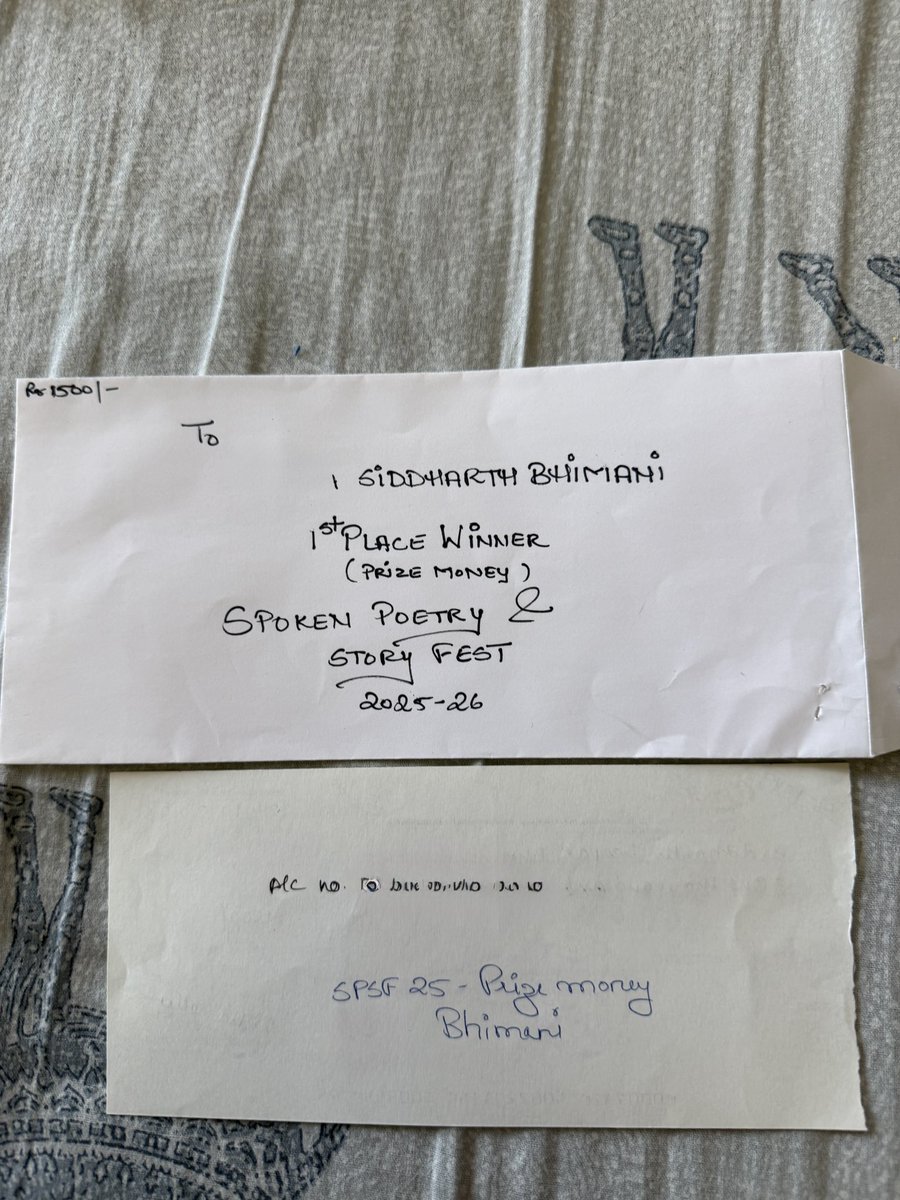 Rs 1500/-
To
SiDDHARTH BHiMANi
1st PLACE WiNNER
(PRIZE MONEY)
SPOKEN POETRY &
STORY FEST
2025-26
A/C no.
SPSF 25 - Prize money
Bhimani